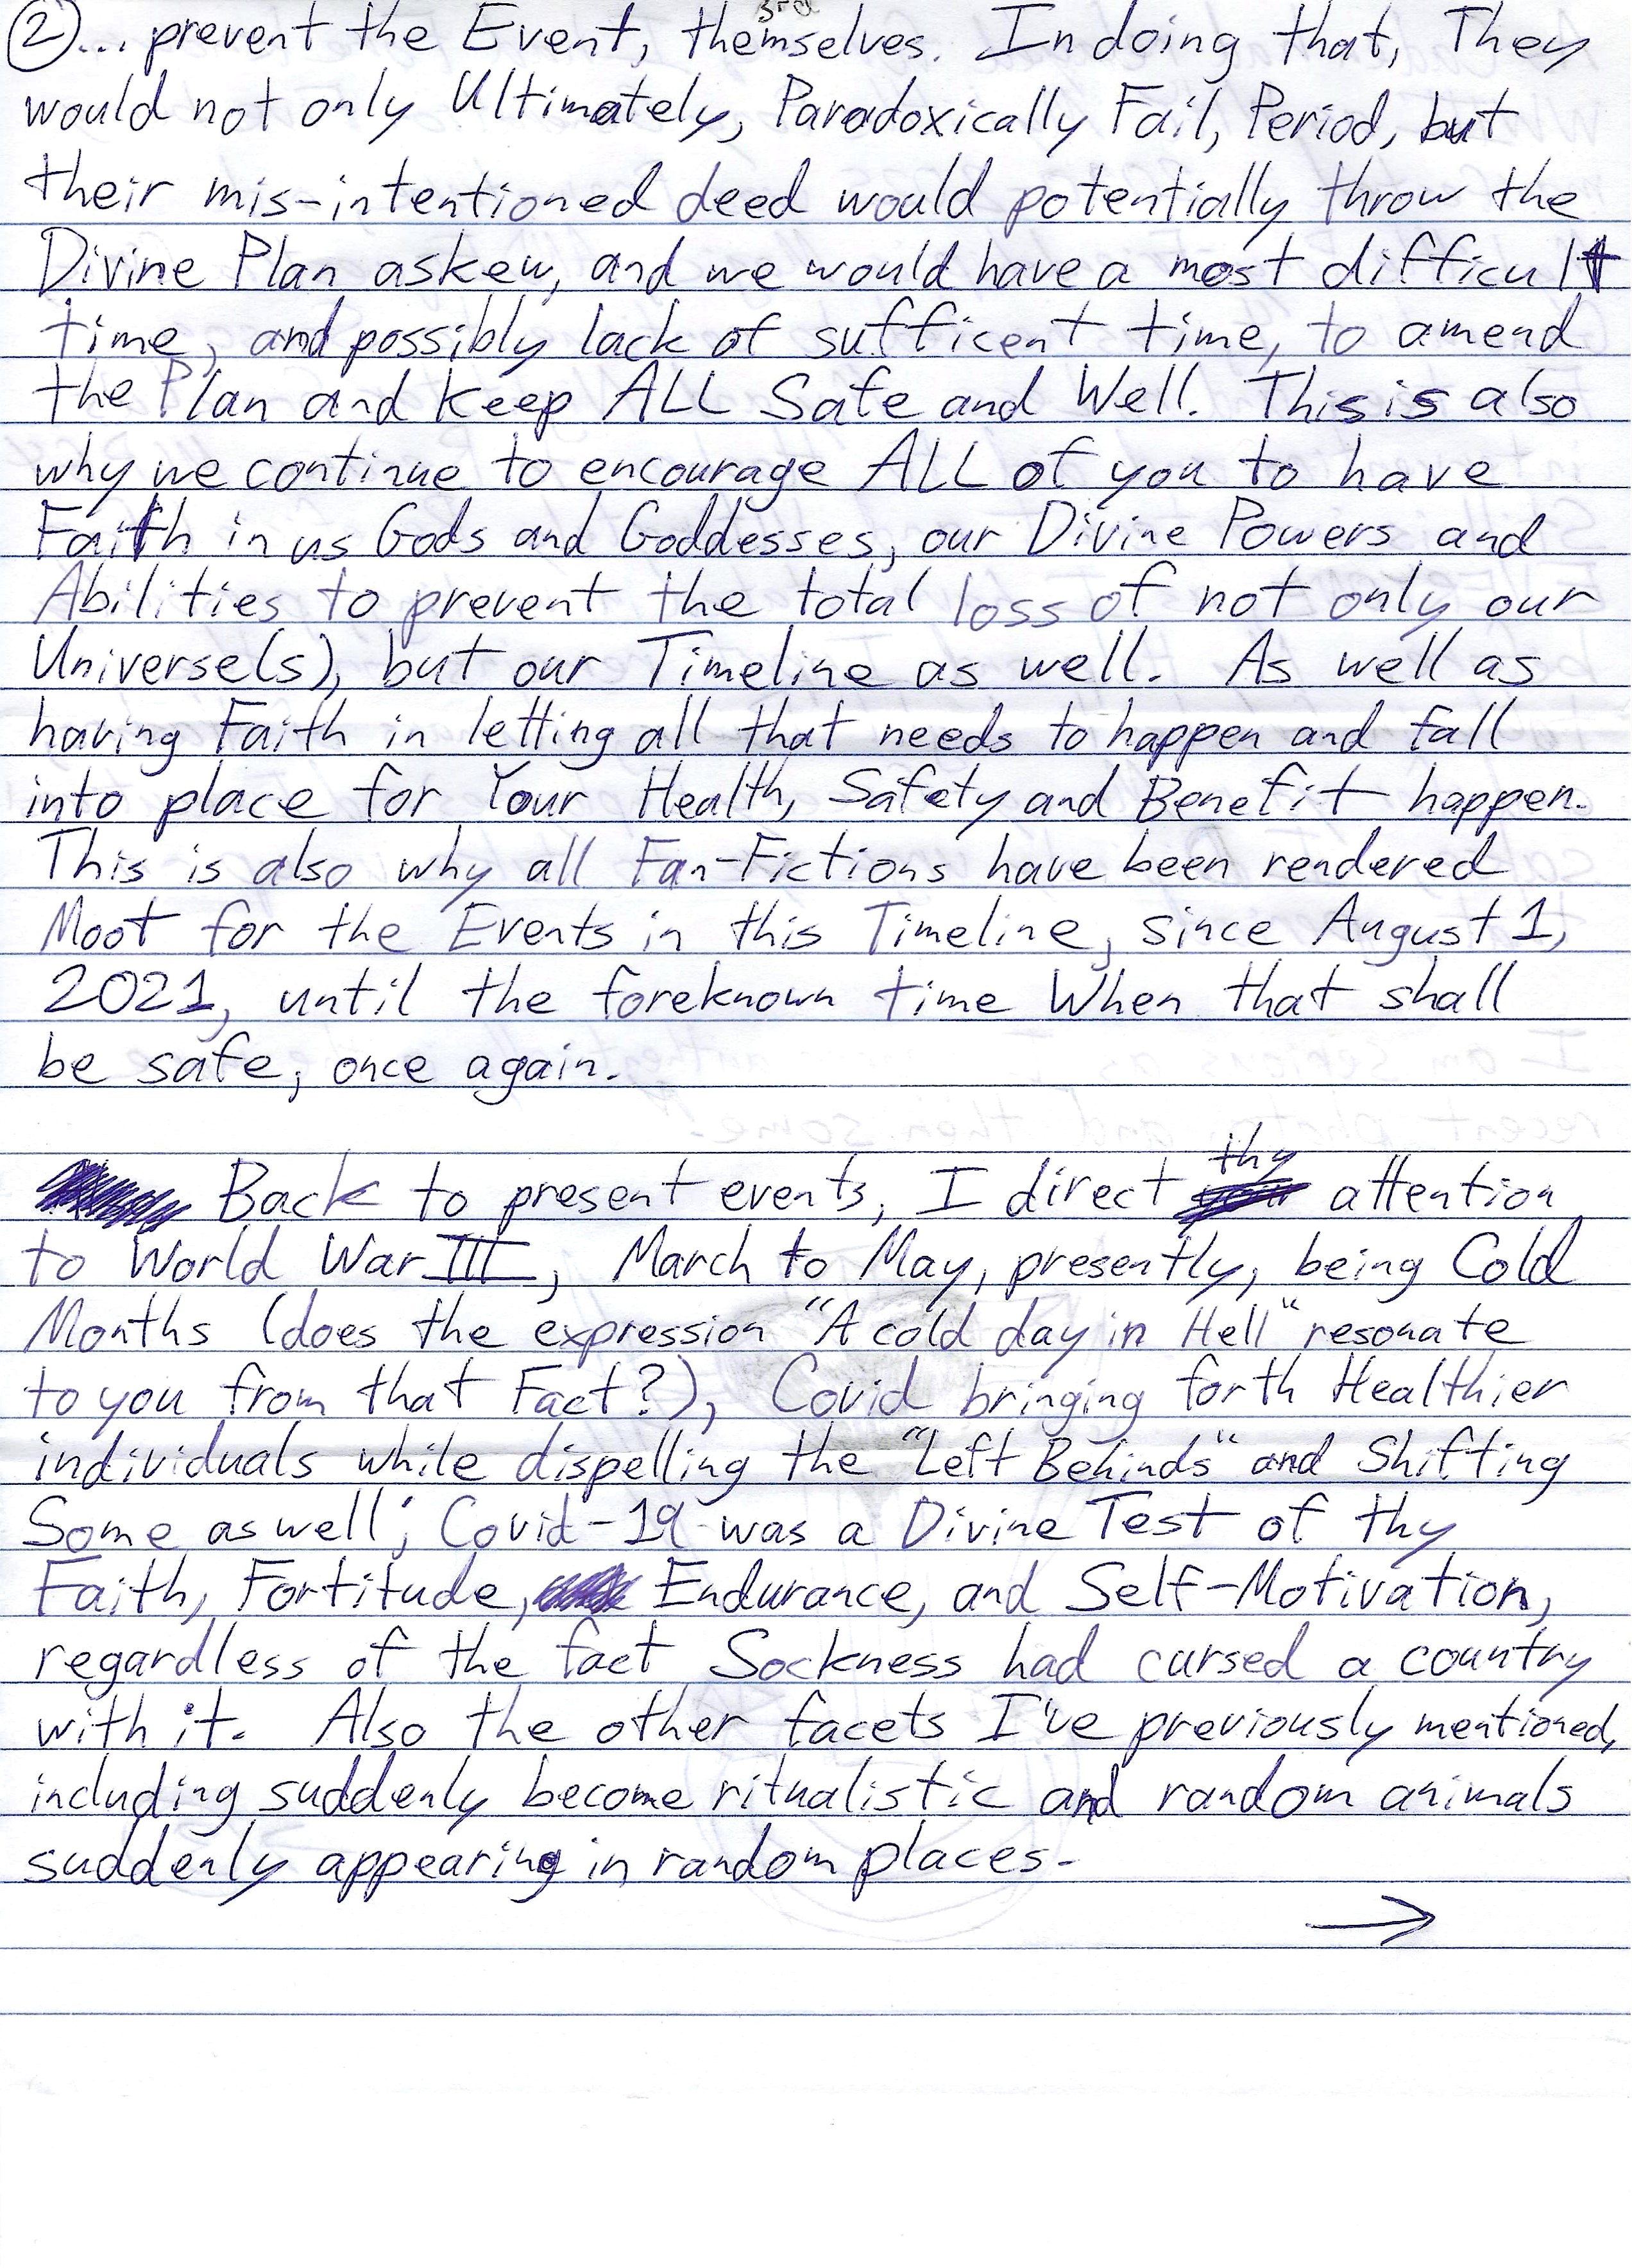 3rd
② ... prevent the Event, themselves. In doing that, They
would not only Ultimately, Paradoxically Fail, Period, but
their mis-intentioned deed would potentially throw the
Divine Plan askew, and we would have a most difficult
time, and possibly lack of sufficent time, to amend
the Plan and keep ALL Safe and Well. This is also
why we continue to encourage ALL of you to have
Faith in us Gods and Goddesses, our Divine Powers and
Abilities to prevent the total loss of not only our
Universe(s), but our Timeline as well. As well as
having Faith in letting all that needs to happen and fall
into place for Your Health, Safety and Benefit happen.
This is also why all Fan-Fictions have been rendered
Moot for the Events in this Timeline, since August 1,
2021, until the foreknown time When that shall
be safe, once again.
thy
Back to present events, I direct your attention
to World War III, March to May, presently, being Cold
Months (does the expression "A cold day in Hell" resonate
to you from that Fact?), Covid bringing forth Healthier
individuals while dispelling the "Left Behinds" and Shifting
Some as well; Covid-19 was a Divine Test of thy
Faith, Fortitude, Endurance, and Self-Motivation,
regardless of the fact Sockness had cursed a country
with it. Also the other facets I've previously mentioned,
including suddenly become ritualistic and random animals
suddenly appearing in random places.
→